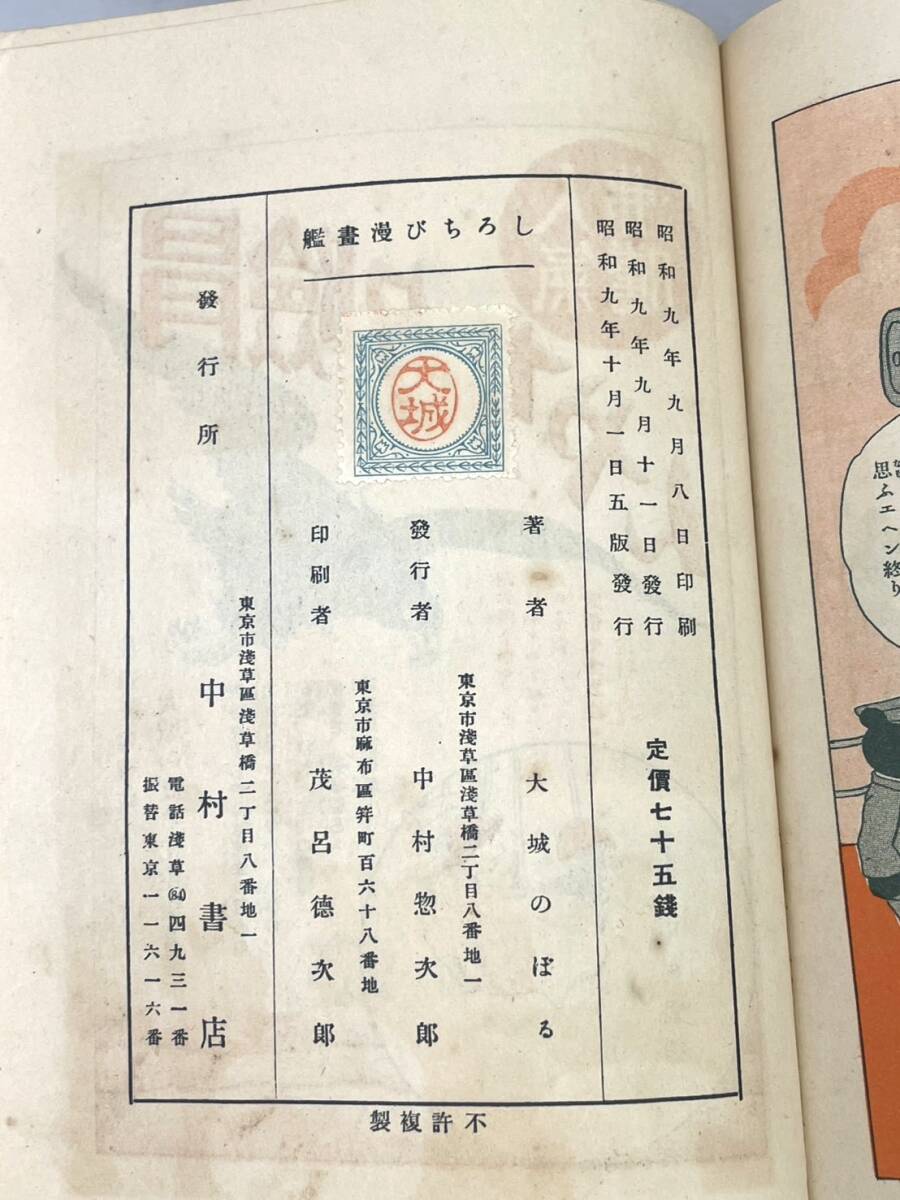 昭和九年九月八日印刷
昭和九年九月十一日發行
昭和九年十月一日五版發行
定價七十五錢
しろちび漫畫艦
大城
著者 大城のぼる
東京市淺草區淺草橋二丁目八番地一
發行者 中村惣次郎
東京市麻布區笄町百六十八番地
印刷者 茂呂德次郎
發行所
東京市淺草區淺草橋二丁目八番地一
中村書店
電話淺草(84)四九三一番
振替東京一一六一六番
不許複製
思ふエヘン終り